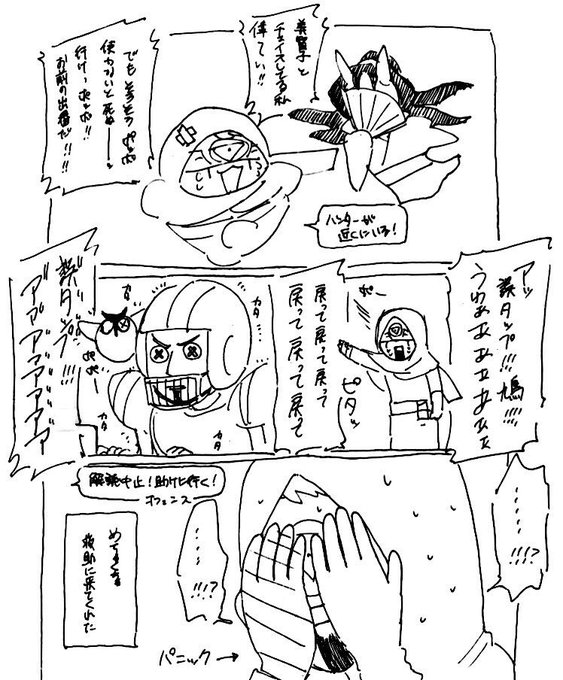 美智子と
チェイスしてる私
偉てぃ!!
でもそろそろポッポ
使わないと死ぬーー
行けっポッポ!!
お前の出番だ!!!
ハンターが
近くにいる!
アッ
誤タップ!!!鳩!!!!
うわぁぁぁぁぁぁ
ポー
ピタッ
戻って戻って戻って
戻って戻って戻って
カタ
カタ
カタ
カタ
ポポー
誤タップ!!!
アアアアアアアア
解読中止!助けに行く!
オフェンス
・・・・・・!!!?
・・・・・!!!?
めてくちゃ
救助に来てくれた
パニック→